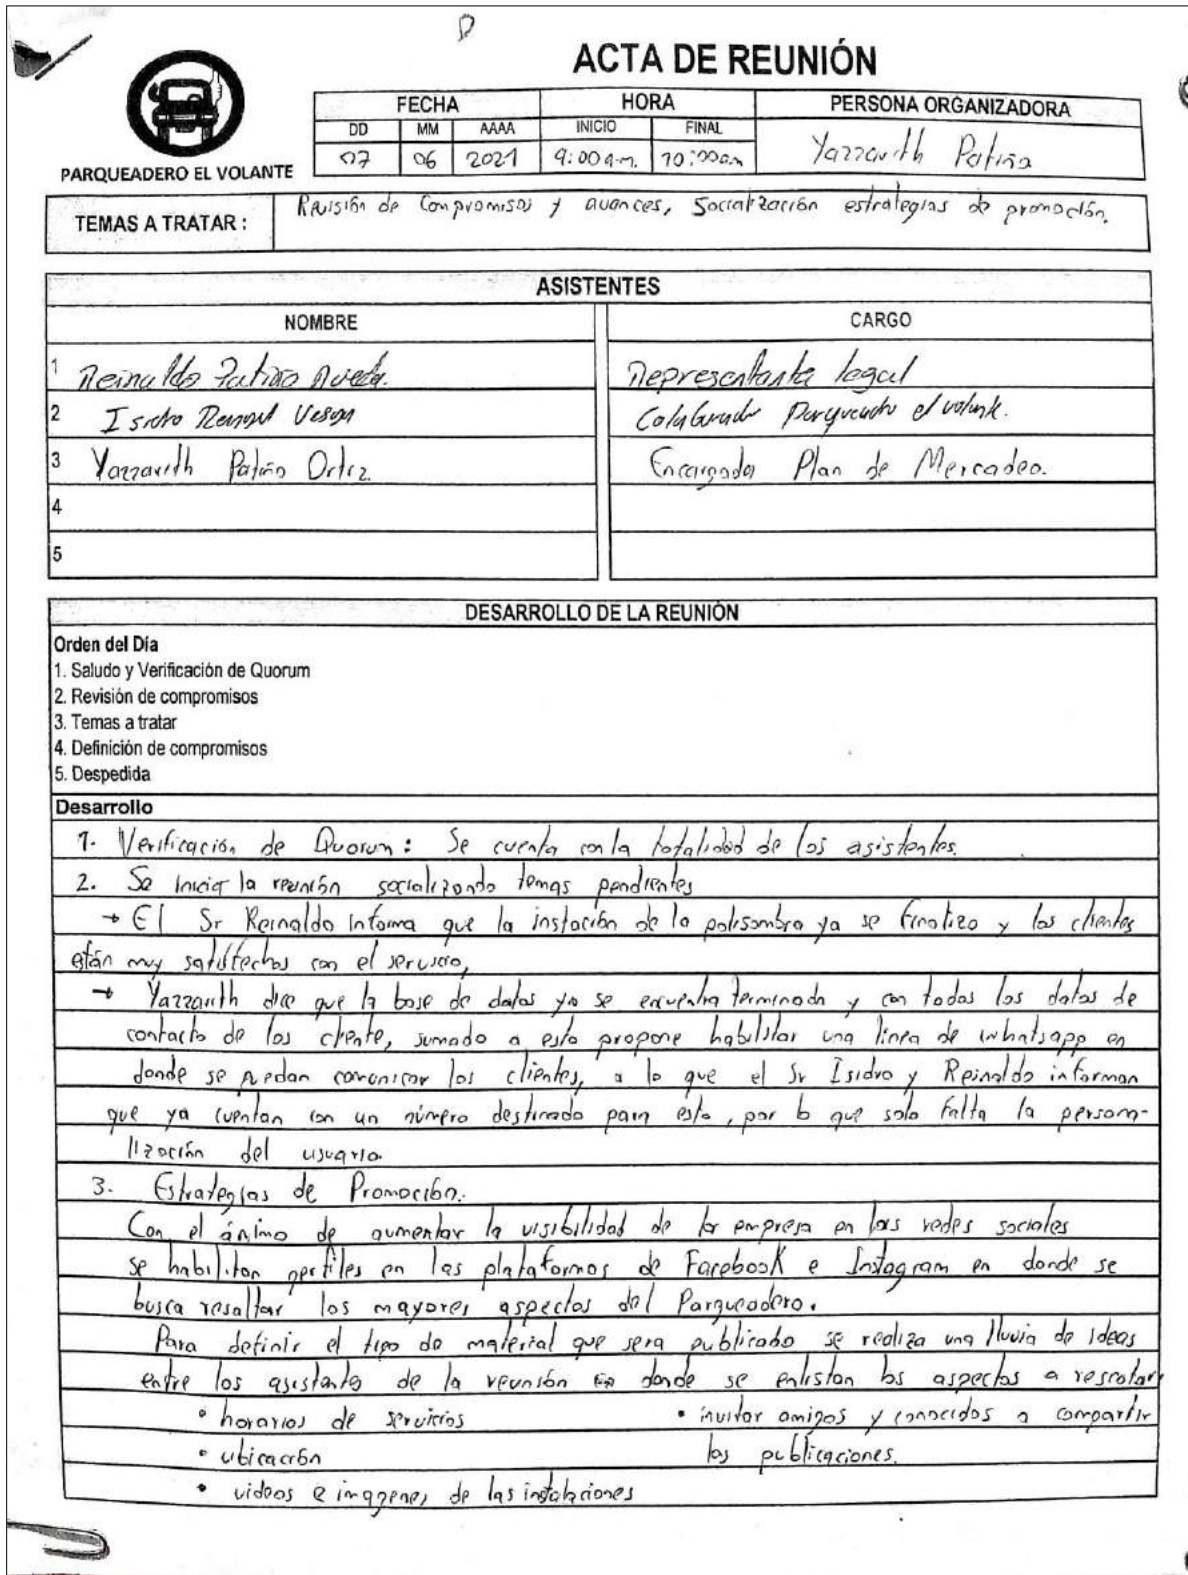 ACTA DE REUNIÓN
PARQUEADERO EL VOLANTE
FECHA HORA PERSONA ORGANIZADORA
DD MM AAAA INICIO FINAL
07 06 2021 9:00 a.m. 10:00am Yazzavith Patiño
TEMAS A TRATAR : Revisión de Compromisos y avances, Socialización estrategias de promoción.
ASISTENTES
NOMBRE CARGO
1 Reinaldo Patiño Representante legal
2 Isidro Parqueadero el volante.
3 Yazzavith Patiño Ortiz Encargada Plan de Mercadeo.
4
5
DESARROLLO DE LA REUNIÓN
Orden del Día
1. Saludo y Verificación de Quorum
2. Revisión de compromisos
3. Temas a tratar
4. Definición de compromisos
5. Despedida
Desarrollo
1. Verificación de Quorum: Se cuenta con la totalidad de los asistentes.
2. Se inicia la reunión socializando temas pendientes
→ El Sr Reinaldo informa que la instación de la polisombra ya se finalizo y los clientes
están muy satisfechos con el servicio,
→ Yazzavith dice que la base de datos ya se encuentra terminada y con todos los datos de
contacto de los cliente, sumado a esto propone habilitar una linea de whatsapp en
donde se puedan comunicar los clientes, a lo que el Sr Isidro y Reinaldo informan
que ya cuentan con un número destinado para esto, por lo que solo falta la persona-
lización del usuario.
3. Estrategias de Promoción.
Con el ánimo de aumentar la visibilidad de la empresa en las redes sociales
se habilitan perfiles en las plataformas de Facebook e Instagram en donde se
busca resaltar los mayores aspectos del Parqueadero.
Para definir el tipo de material que sera publicado se realiza una lluvia de ideas
entre los asistentes de la reunión en donde se enlistan los aspectos a rescatar
• horarios de servicios • invitar amigos y conocidos a compartir
• ubicación las publicaciones.
• videos e imagenes de las instalaciones